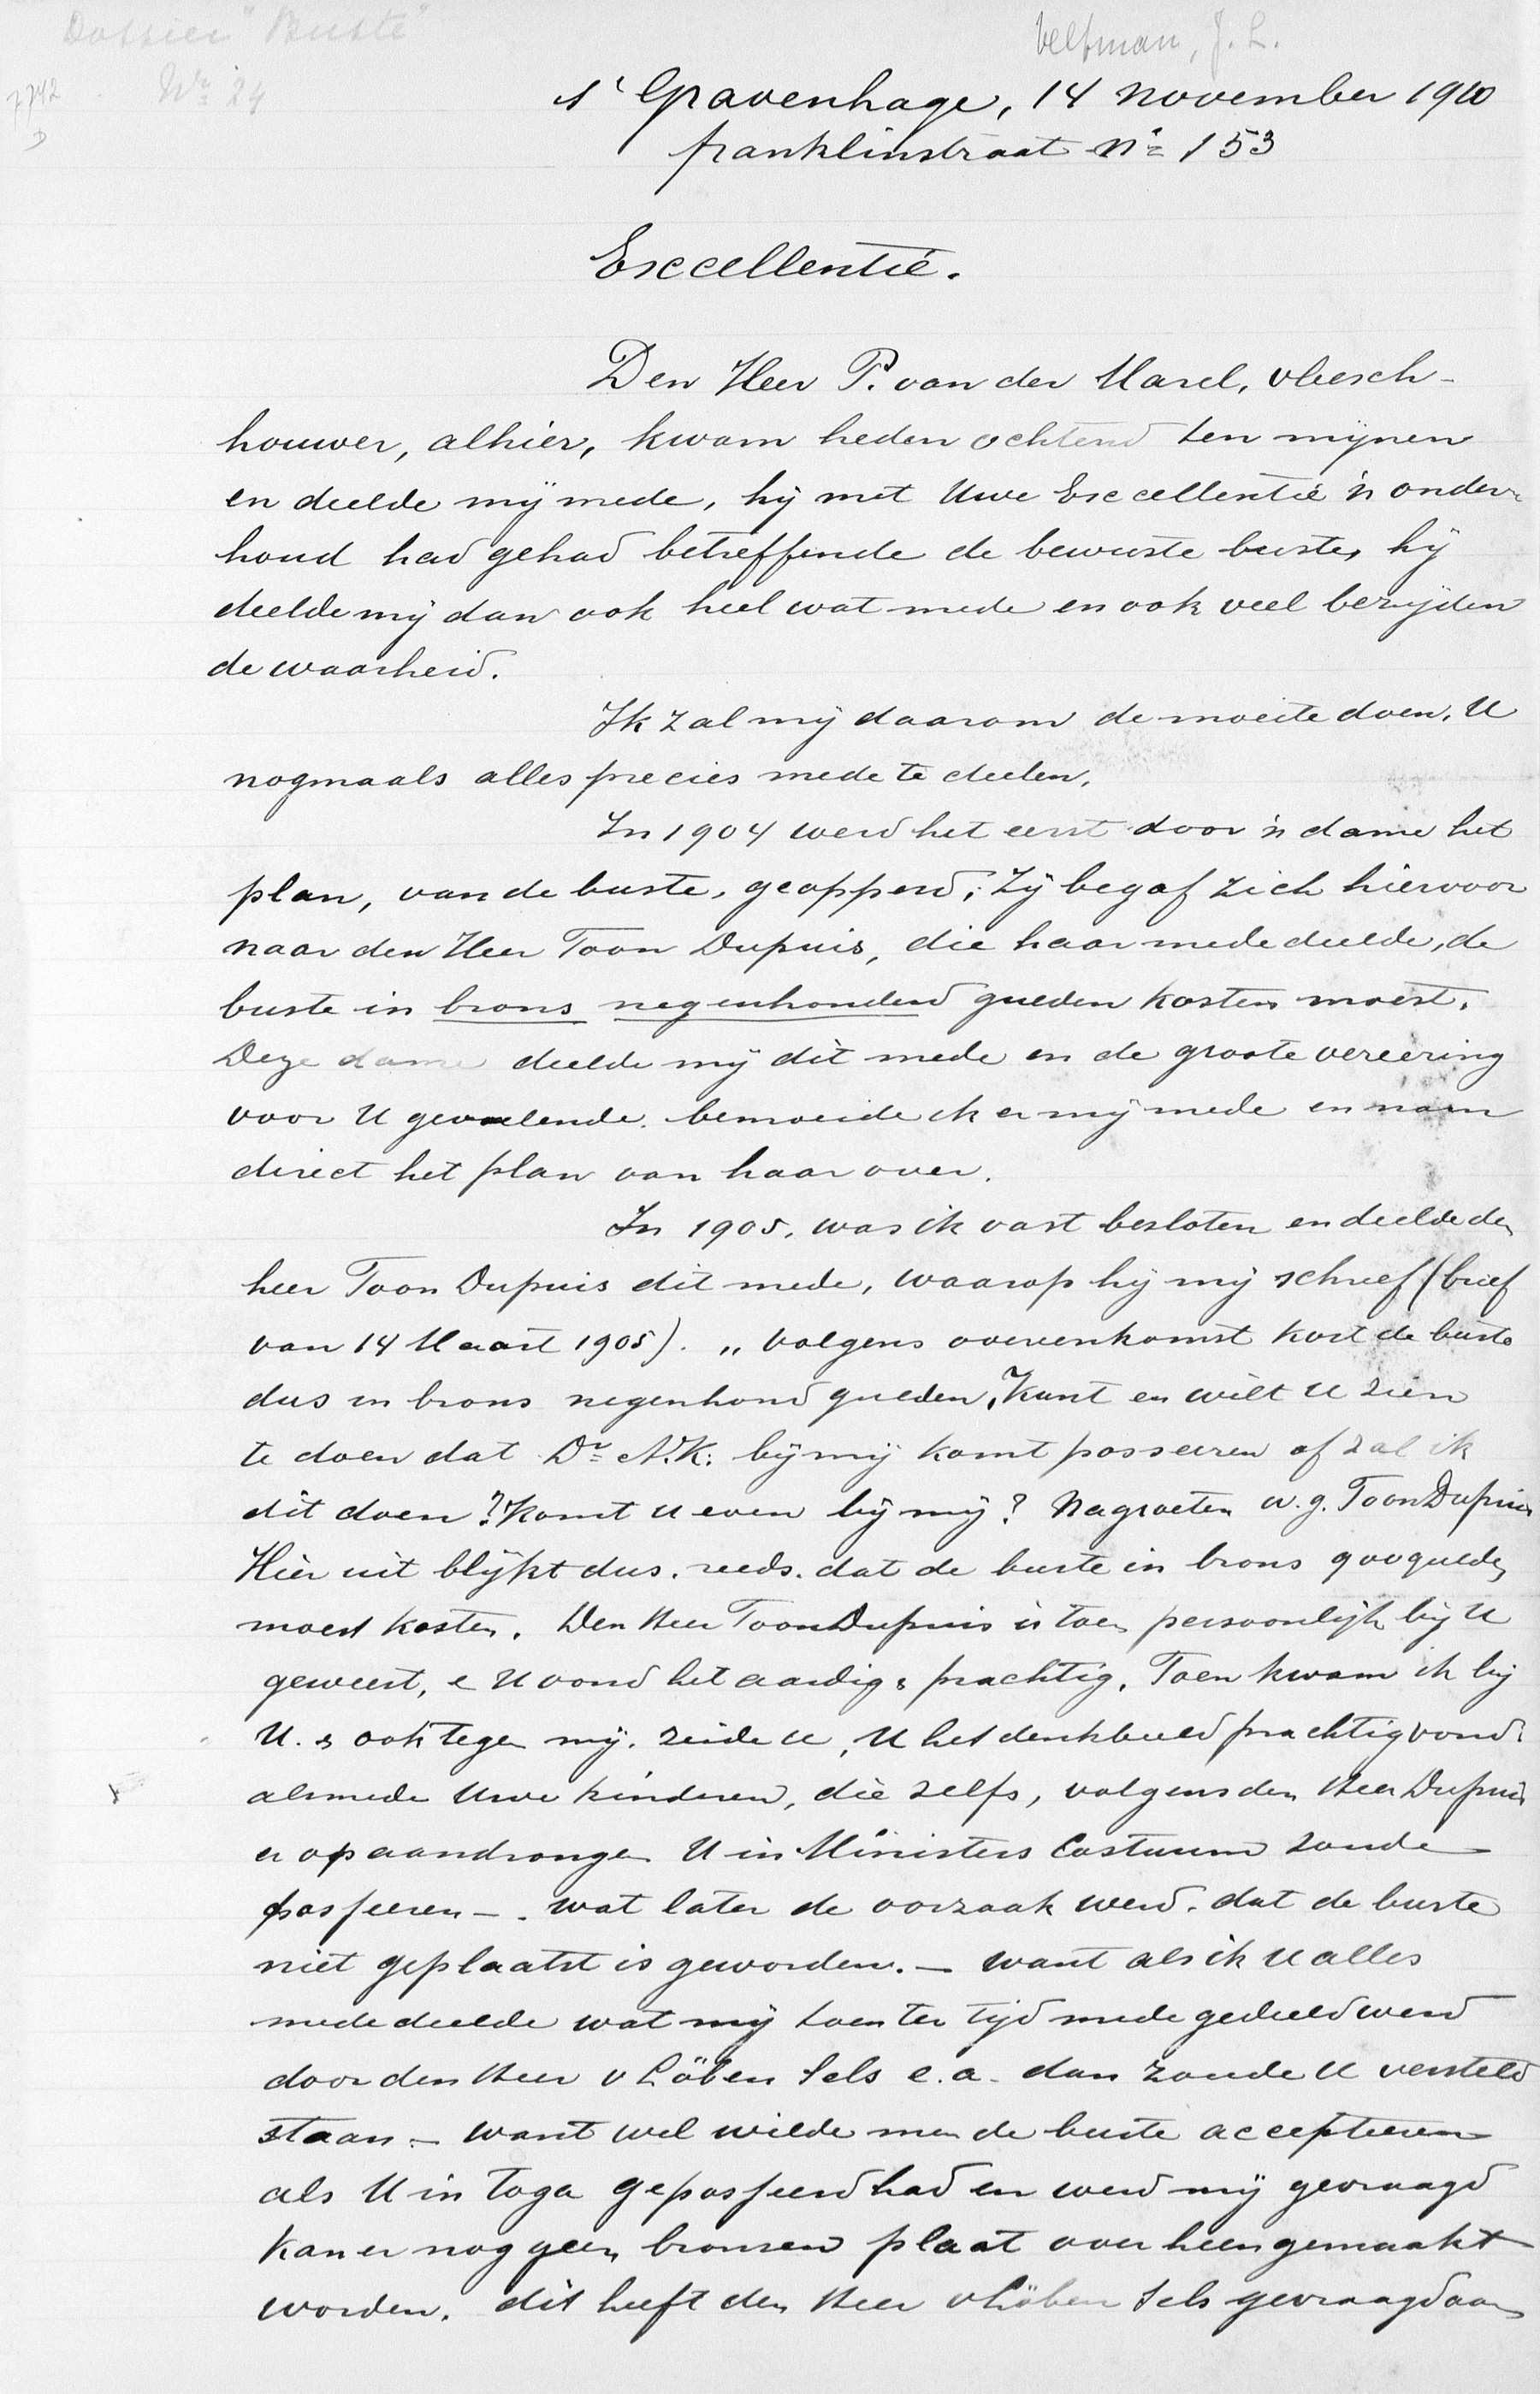 Dossier "Buste"
No 24
7742
D
Veltman, J. L.
s' Gravenhage, 14 November 1910
Franklinstraat No 153
Excellentie.
Den Heer P. van der Marel, vleesch-
houwer, alhier, kwam heden ochtend ten mijnen
en deelde mij mede, hij met Uwe Excellentie 'n onder-
houd had gehad betreffende de bewuste buste, hij
deelde mij dan ook heel wat mede en ook veel bezijden
de waarheid.
Ik zal mij daarom de moeite doen, U
nogmaals alles precies mede te deelen.
In 1904 werd het eerst door 'n dame het
plan, van de buste, geopperd; Zij begaf zich hiervoor
naar den Heer Toon Dupuis, die haar mededeelde, de
buste in brons negenhonderd gulden kosten moest.
Deze dame deelde mij dit mede en de groote vereering
voor U gevoelende, bemoeide ik er mij mede en nam
direct het plan van haar over.
In 1905, was ik vast besloten en deelde den
heer Toon Dupuis dit mede, waarop hij mij schreef (brief
van 14 Maart 1905). „volgens overeenkomst kost de buste
dus in brons negenhond gulden, Kunt en wilt u zien
te doen dat Dr A.K. bij mij komt posseeren of zal ik
dit doen? Komt u even bij mij? Na groeten w.g. Toon Dupuis
Hier uit blijkt dus, reeds, dat de buste in brons 900 gulden
moest kosten. Den Heer Toon Dupuis is toen persoonlijk bij U
geweest, e U vond het aardig & prachtig. Toen kwam ik bij
U. & ook tegen mij, zeide u, U het denkbeeld prachtig vond.
alsmede Uwe kinderen, die zelfs, volgens den Heer Dupuis
er op aandrongen U in Ministers Costuum zoude
posseeren -. wat later de oorzaak werd, dat de buste
niet geplaatst is geworden. - want als ik U alles
mededeelde wat mij toen ter tijd medegedeeld werd
door den Heer v Löben Sels e.a. dan zoude U versteld
staan - want wel wilde men de buste accepteeren
als U in Toga geposseerd had en werd mij gevraagd
kan er nog geen bronzen plaat over heen gemaakt
worden. dit heeft den Heer v Löben Sels gevraagd aan